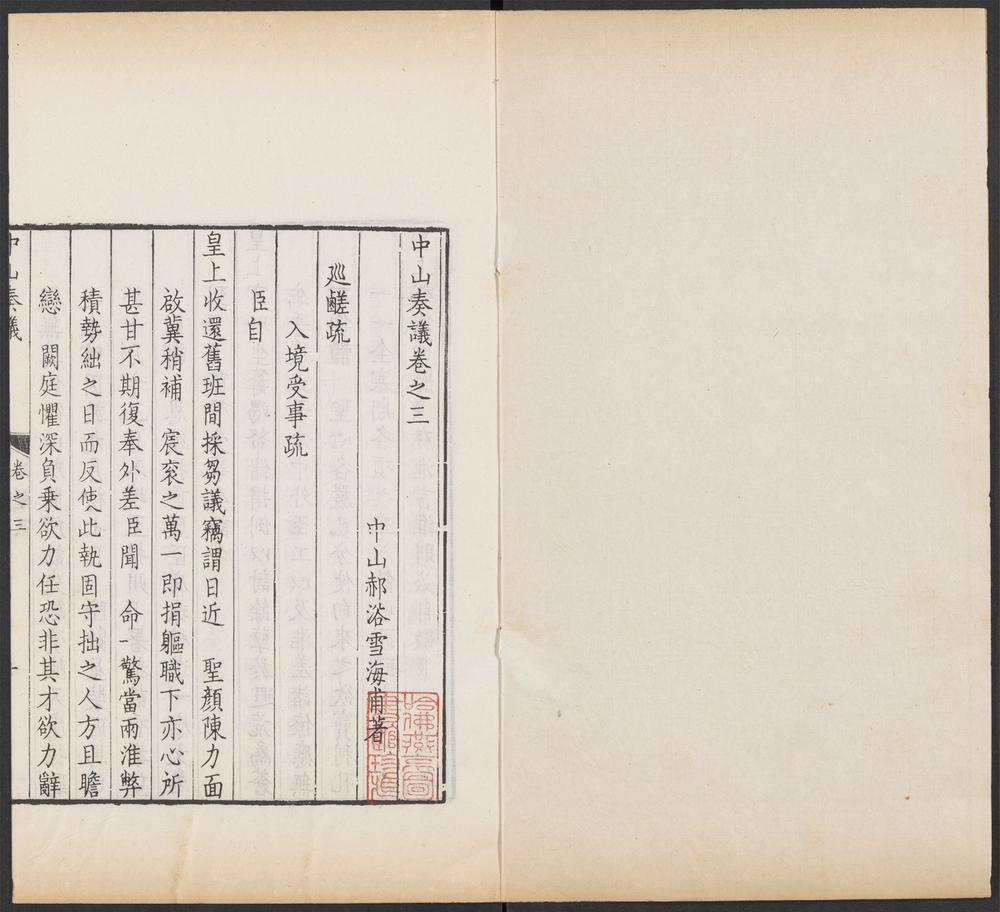 中山奏議卷之三
中山郝浴雪海甫著
廵鹺疏
入境受事疏
臣自
皇上收還舊班間採芻議竊謂日近　聖顏陳力面
啟冀稍補　宸衮之萬一即捐軀職下亦心所
甚甘不期復奉外差臣聞　命一驚當兩淮弊
積勢絀之日而反使此執固守拙之人方且瞻
戀　闕庭懼深負乗欲力任恐非其才欲力辭
中山奏議
卷之三
一
哈佛燕京圖